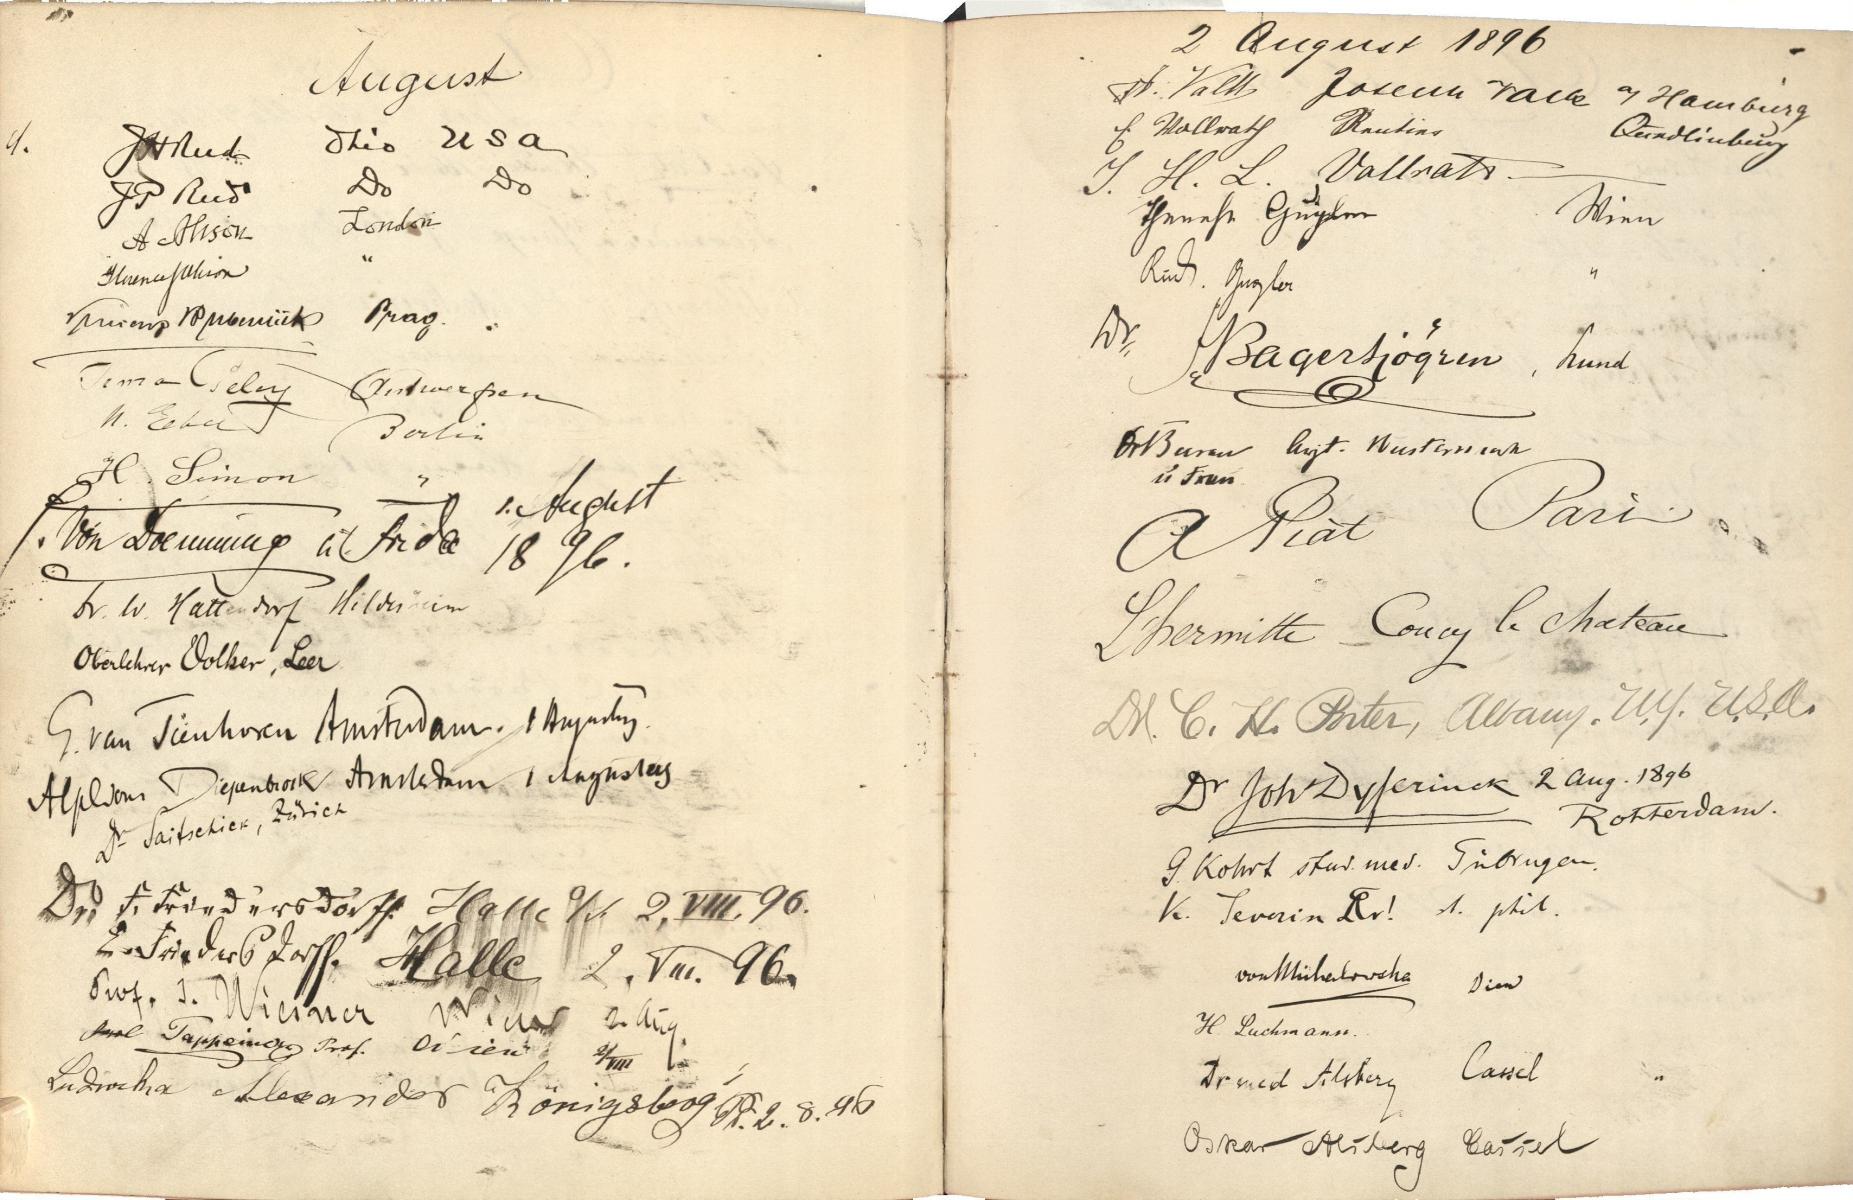 August
1.
Ohio U S A
Do Do
London
"
Prag.
Antwerpen
Berlin
H. Simon "
Von Doemming u Frida 1. August 1896.
Dr. W. Hattendorf Hildesheim
Oberlehrer Volker, Leer
G. van Tienhoven Amsterdam. 1 Augustus.
Alphons Diepenbrock Amsterdam 1 Augustus
Dr Saitschick, Zürich
Dr. F. Friedersdorff. Halle a/S. 2. VIII. 96.
E. Friedersdorff. Halle 2. VIII. 96.
Prof. J. Wiesner Wien 2. Aug.
Tappeiner Prof. Wien 2/VIII
Ludwika Alexander Königsberg i/Pr. 2. 8. 96
2 August 1896
Joseph Hamburg
E. Vollrath Rentier Quedlinburg
J. H. L. Vollrath.
Therese Gugler Wien
Rud. Gugler "
Dr. Bager-Sjögren, Lund
Dr Burow Arzt. Wustermark
u Frau
A Piat Paris
Lhermitte Coucy le Chateau
Dr. C. H. Porter, Albany. N.Y. U.S.A.
Dr Joh Dyserinck 2 Aug. 1896
Rotterdam.
G. Kohrt stud. med. Tübingen.
K. Severin st. phil.
H Luchmann.
Dr med Alsberg Cassel "
Oskar Alsberg Cassel